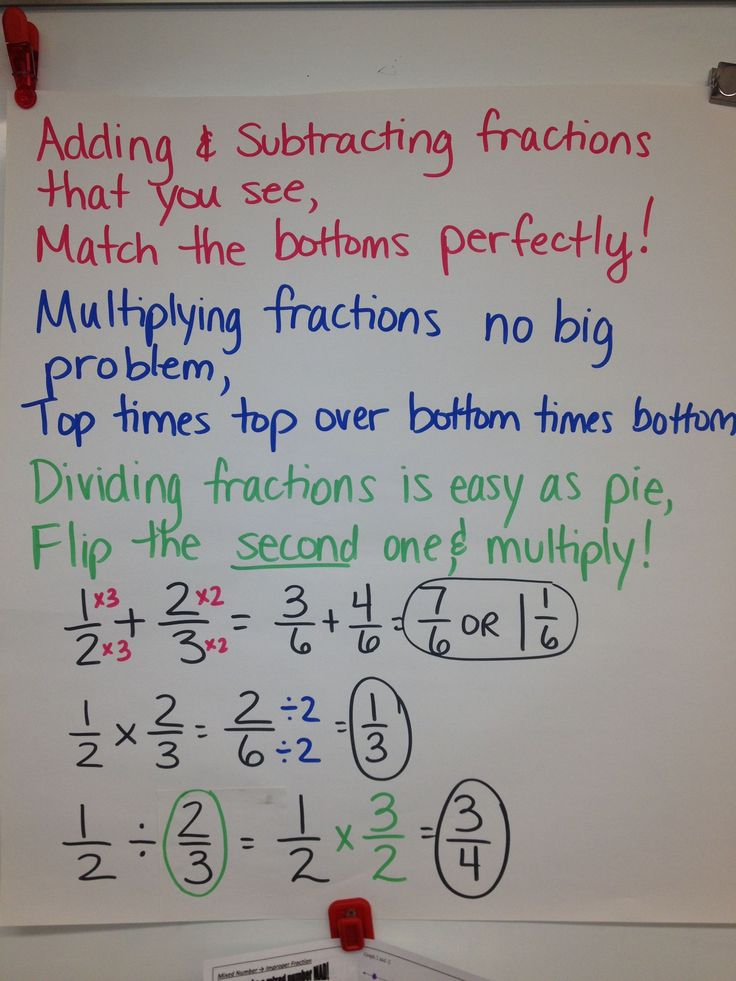 Adding & Subtracting fractions
that you see,
Match the bottoms perfectly!
Multiplying fractions no big
problem,
Top times top over bottom times bottom
Dividing fractions is easy as pie,
Flip the second one & multiply!
1×3/2×3 + 2×2/3×2 = 3/6 + 4/6 = 7/6 OR 1 1/6
1/2 × 2/3 = 2÷2/6÷2 = 1/3
1/2 ÷ 2/3 = 1/2 × 3/2 = 3/4
Mixed Number → Improper Fraction
a mixed number MAD!